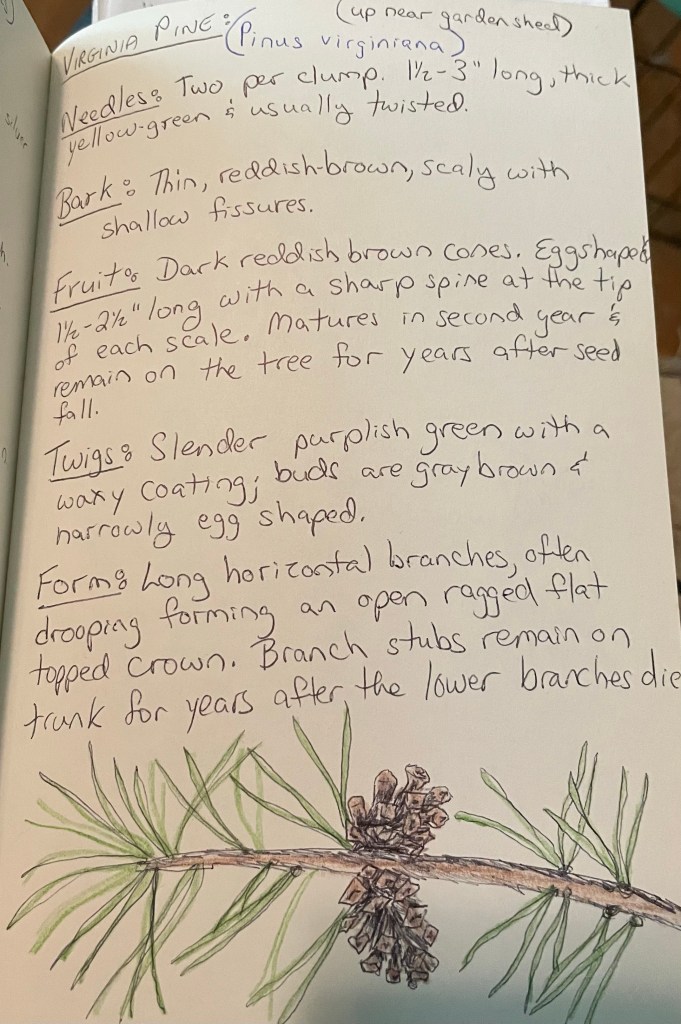 (up near garden shed)
VIRGINIA PINE: (Pinus virginiana)
Needles: Two per clump. 1½-3" long, thick
yellow-green & usually twisted.
Bark: Thin, reddish-brown, scaly with
shallow fissures.
Fruit: Dark reddish brown cones. Eggshaped
1½-2½" long with a sharp spine at the tip
of each scale. Matures in second year &
remain on the tree for years after seed
fall.
Twigs: Slender purplish green with a
waxy coating; buds are gray brown &
narrowly egg shaped.
Form: Long horizontal branches, often
drooping forming an open ragged flat
topped crown. Branch stubs remain on
trunk for years after the lower branches die